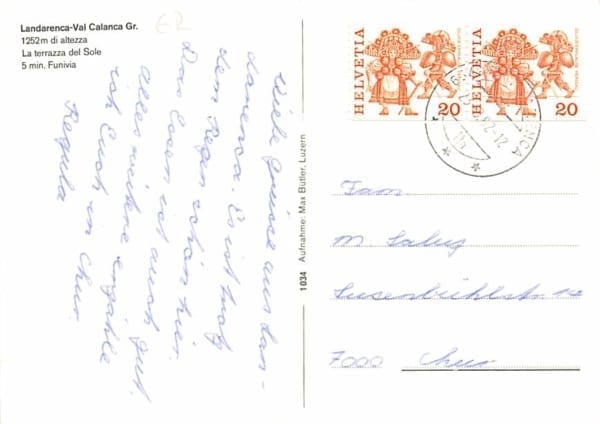 Landarenca-Val Calanca Gr.
1252 m di altezza
La terrazza del Sole
5 min. Funivia
Viele Grüsse aus Lan-
darenca. Es ist trotz
dem Regen schön hier.
Das Essen ist auch gut.
Alles weitere erzähle
ich Euch in Chur.
Regula
1034 Aufnahme: Max Bütler, Luzern
HELVETIA 20
HELVETIA 20
Fam.
M. Saluz
7000 Chur